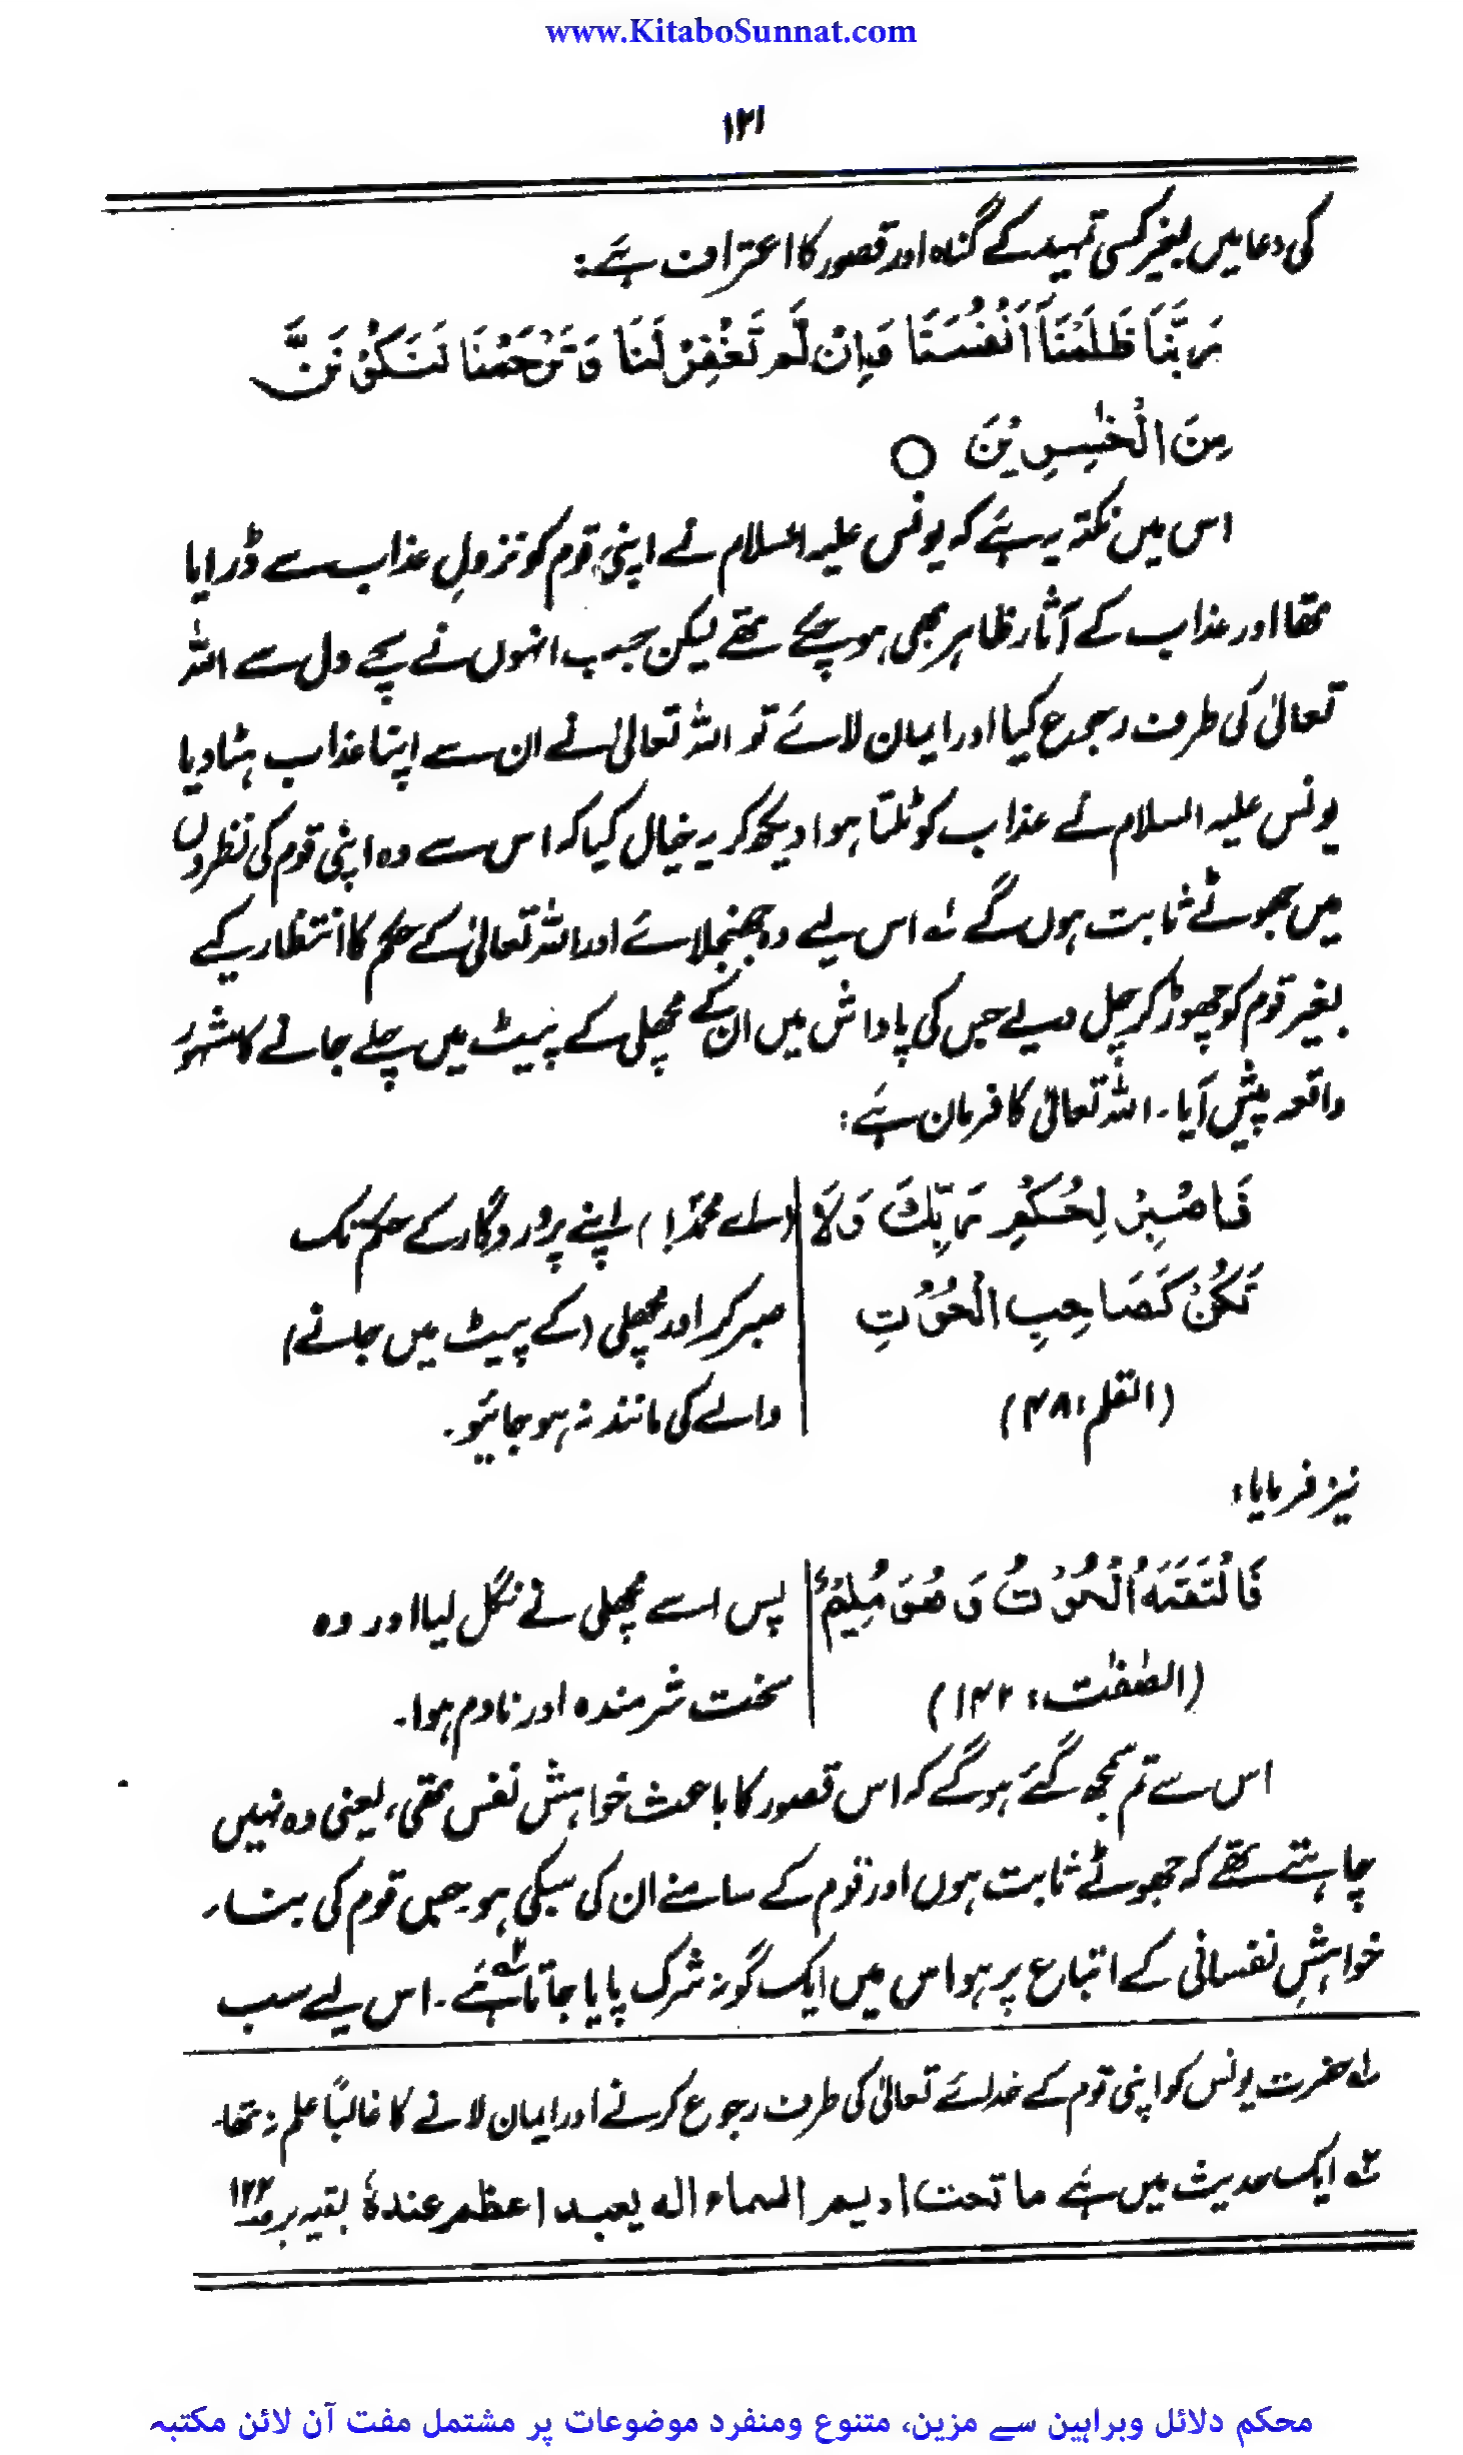 www.KitaboSunnat.com
۱۲۱
کی دعا میں بغیر کسی تمہید کے گناہ اور قصور کا اعتراف ہے:
رَبَّنَا ظَلَمْنَا أَنْفُسَنَا وَإِنْ لَّمْ تَغْفِرْ لَنَا وَتَرْحَمْنَا لَنَكُوْنَنَّ
مِنَ الْخٰسِرِيْنَ ○
اس میں نکتہ یہ ہے کہ یونس علیہ السلام نے اپنی قوم کو نزولِ عذاب سے ڈرایا
تھا اور عذاب کے آثار ظاہر بھی ہو چکے تھے لیکن جب انہوں نے سچے دل سے اللہ
تعالیٰ کی طرف رجوع کیا اور ایمان لائے تو اللہ تعالیٰ نے ان سے اپنا عذاب ہٹا دیا
یونس علیہ السلام نے عذاب کو ٹلتا ہوا دیکھ کر یہ خیال کیا کہ اس سے وہ اپنی قوم کی نظروں
میں جھوٹے ثابت ہوں گے ؎۱ اس لیے وہ جھنجلائے اور اللہ تعالیٰ کے حکم کا انتظار کیے
بغیر قوم کو چھوڑ کر چل دیے جس کی پاداش میں ان کے مچھلی کے پیٹ میں چلے جانے کا مشہور
واقعہ پیش آیا۔ اللہ تعالیٰ کا فرمان ہے:
فَاصْبِرْ لِحُكْمِ رَبِّكَ وَلَا (اے محمدؐ!) اپنے پروردگار کے حکم تک
تَكُنْ كَصَاحِبِ الْحُوْتِ صبر کر اور مچھلی (کے پیٹ میں جانے)
(القلم: ۴۸) والے کی مانند نہ ہو جائیو۔
نیز فرمایا:
فَالْتَقَمَهُ الْحُوْتُ وَهُوَ مُلِيْمٌ پس اسے مچھلی نے نگل لیا اور وہ
(الصّٰفّٰت: ۱۴۲) سخت شرمندہ اور نادم ہوا۔
اس سے تم سمجھ گئے ہو گے کہ اس قصور کا باعث خواہش نفس تھی، یعنی وہ نہیں
چاہتے تھے کہ جھوٹے ثابت ہوں اور قوم کے سامنے ان کی سبکی ہو۔ جس قوم کی بناء
خواہشِ نفسانی کے اتباع پر ہو اس میں ایک گونہ شرک پایا جاتا ؎۲ ہے۔ اس لیے سب
؎۱ حضرت یونس کو اپنی قوم کے خدائے تعالیٰ کی طرف رجوع کرنے اور ایمان لانے کا غالباً علم نہ تھا۔
؎۲ ایک حدیث میں ہے ما تحت ادیم السماء اله يعبد اعظم عندهٗ بقیہ بر ص۱۲۲
محکم دلائل وبراہین سے مزین، متنوع ومنفرد موضوعات پر مشتمل مفت آن لائن مکتبہ